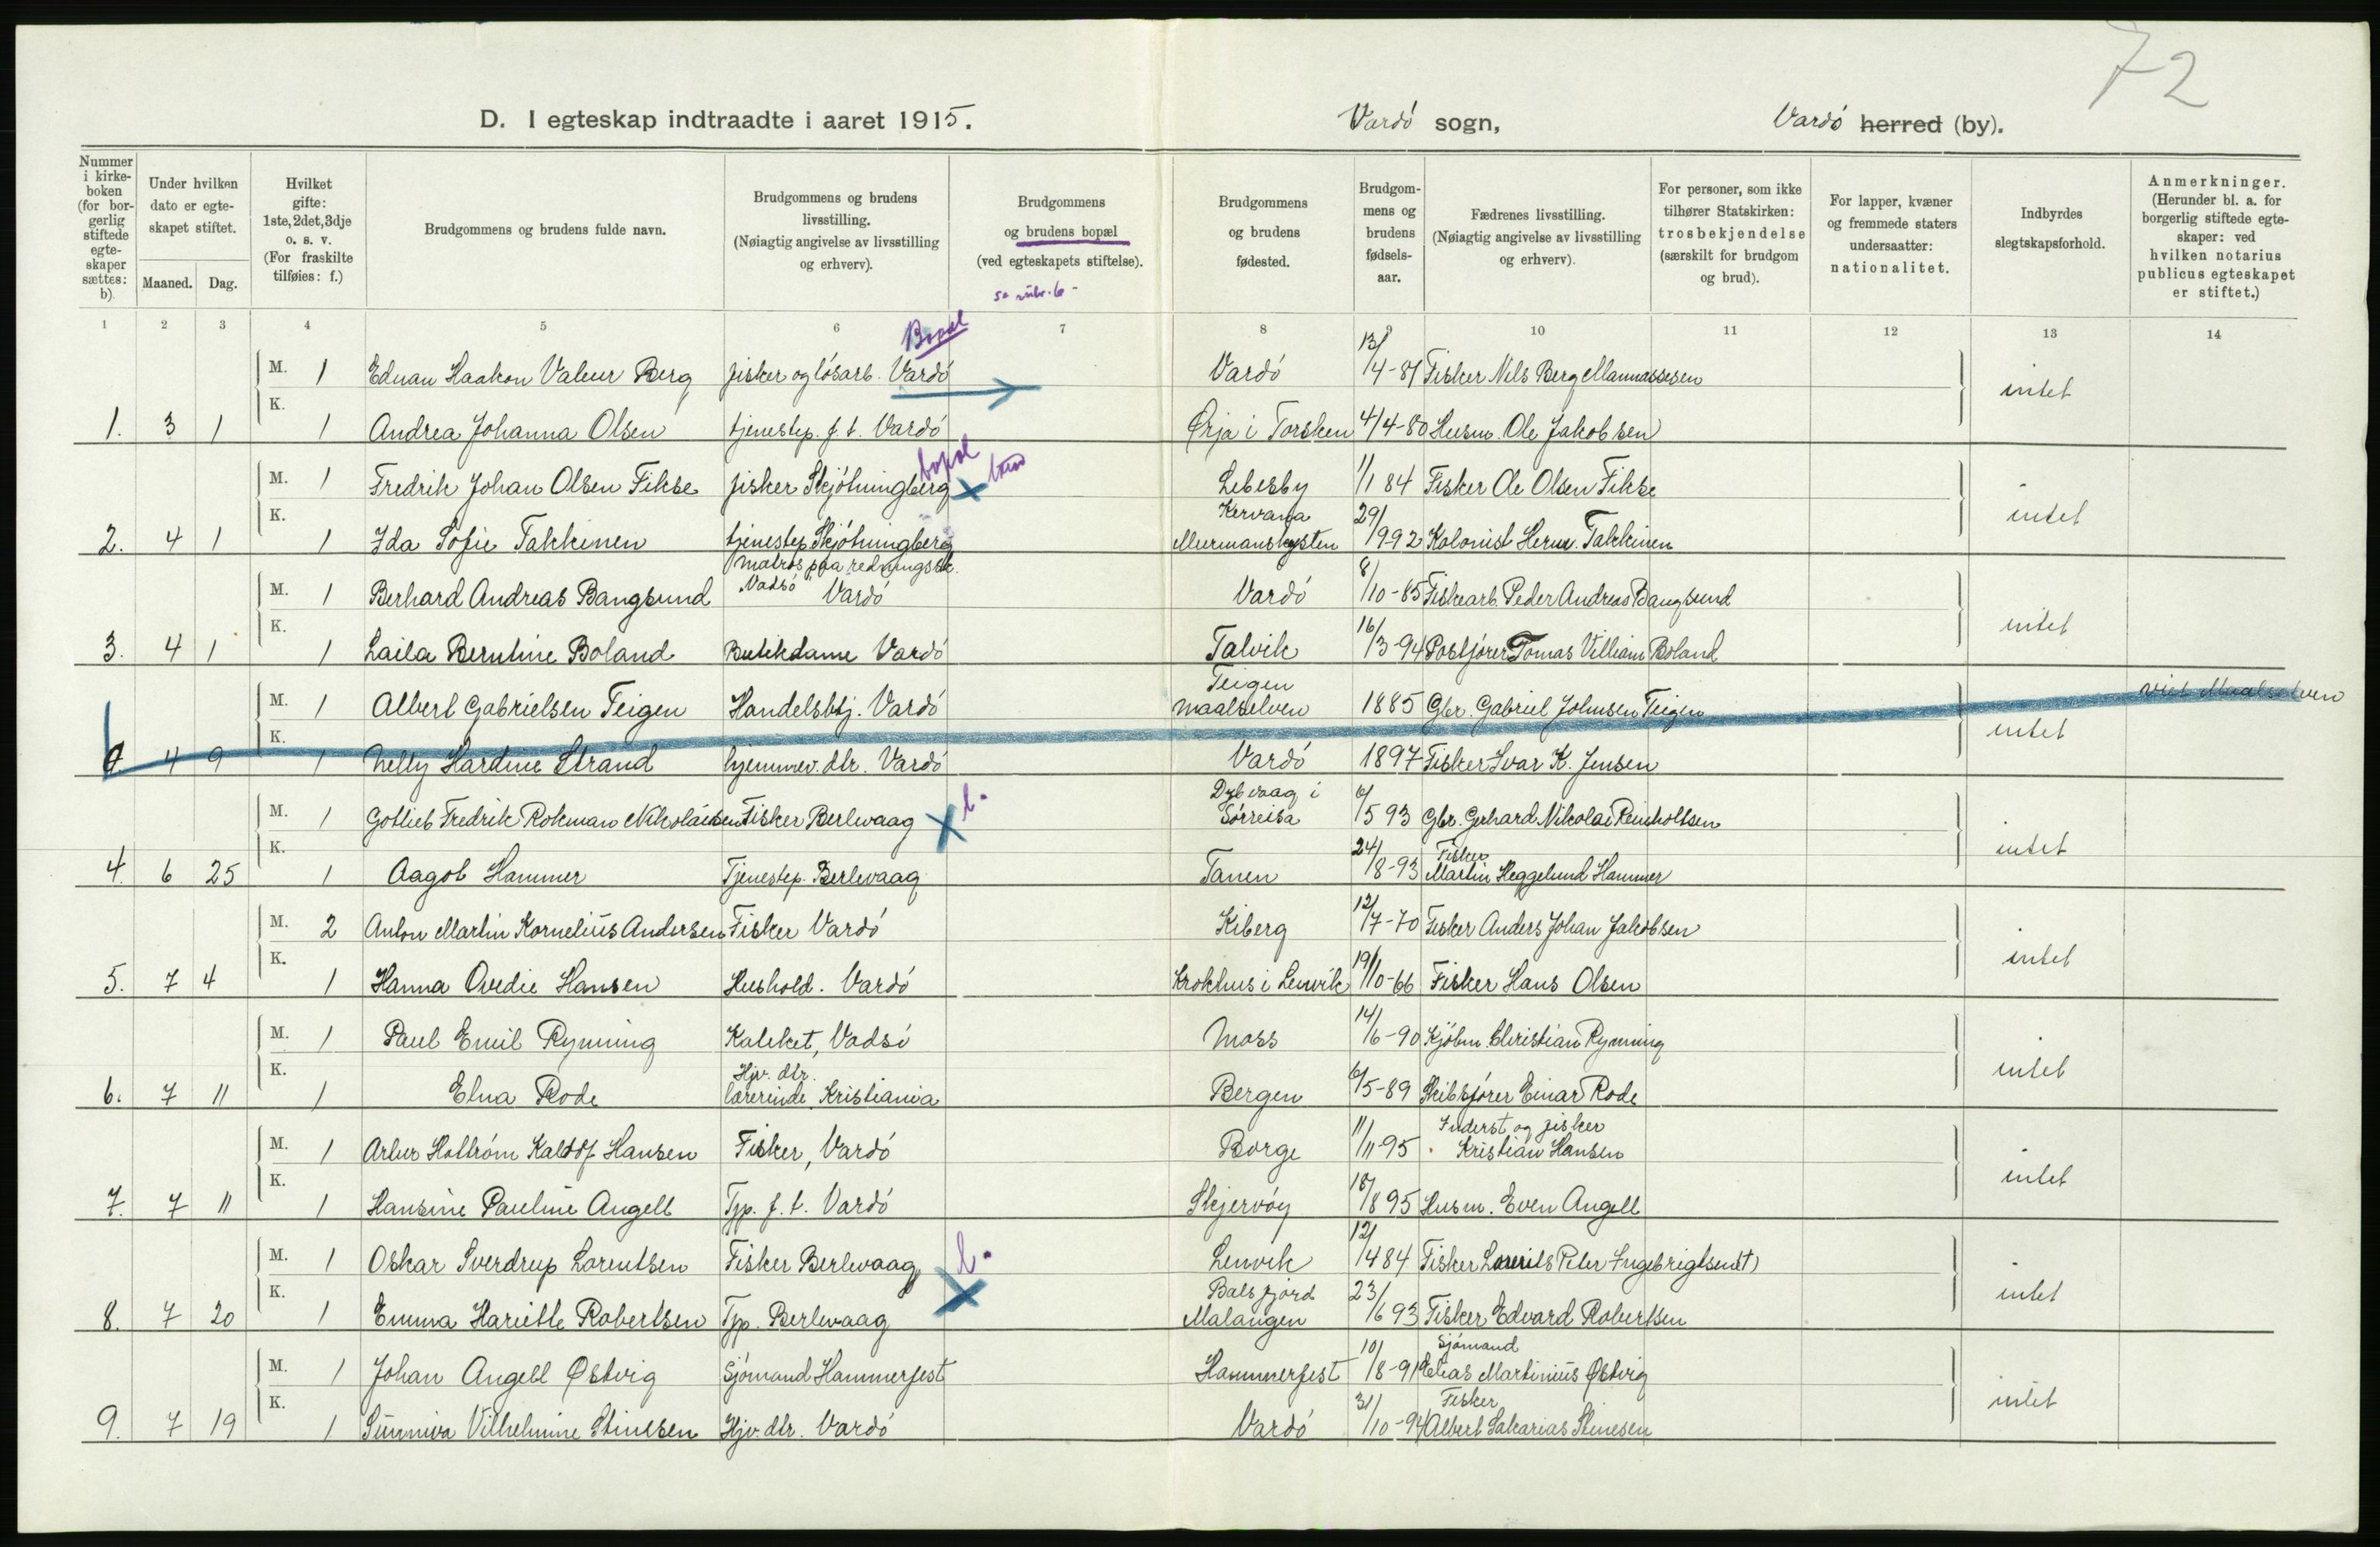 72
D. I egteskap indtraadte i aaret 1915.
Vardö sogn,
Vardö herred (by).
Nummer i kirke-boken (for bor-gerlig stiftede egte-skaper sættes: b)
Under hvilken dato er egte-skapet stiftet.
Maaned. Dag.
Hvilket gifte: 1ste, 2det, 3dje o. s. v. (For fraskilte tilføies: f.)
Brudgommens og brudens fulde navn.
Brudgommens og brudens livsstilling. (Nøiagtig angivelse av livsstilling og erhverv).
Brudgommens og brudens bopæl (ved egteskapets stiftelse).
Brudgommens og brudens fødested.
Brudgom-mens og brudens fødsels-aar.
Fædrenes livsstilling. (Nøiagtig angivelse av livsstilling og erhverv).
For personer, som ikke tilhører Statskirken: trosbekjendelse (særskilt for brudgom og brud).
For lapper, kvæner og fremmede staters undersaatter: nationalitet.
Indbyrdes slegtskapsforhold.
Anmerkninger. (Herunder bl. a. for borgerlig stiftede egte-skaper: ved hvilken notarius publicus egteskapet er stiftet.)
1 2 3 4 5 6 7 8 9 10 11 12 13 14
Bopæl
M. 1 Edvan Haakon Valeur Berg fisker og lösarb. Vardö Vardö 13/4-87 Fisker Nils Berg Mannassesen intet
1. 3 1 K. 1 Andrea Johanna Olsen tjenestep. f. t. Vardö Ørja i Torsken 4/4-80 Husm. Ole Jakobsen
bopæl
M. 1 Fredrik Johan Olsen Fikse fisker Skjötningberg Lebesby 1/1 84 Fisker Ole Olsen Fikse intet
2. 4 1 K. 1 Ida Sofie Takkinen tjenestep Skjötningberg Murmanskysten 29/9 92 Kolonist Herm. Takkinen
M. 1 Berhard Andreas Bangsund Matros paa redningssk. Vadsö Vardö Vardö 8/10-85 Fiskearb. Peder Andreas Bangsund intet
3. 4 1 K. 1 Laila Berntine Boland Butikdame Vardö Talvik 16/3-94 Postfører Tomas Villiam Boland
M. 1 Albert Gabrielsen Teigen Handelsbtj. Vardö Teigen Maalselven 1885 Gbr. Gabriel Johnsen Teigen intet viet Maalselven
4 9 K. 1 Nelly Hardine Strand hjemmev. dtr. Vardö Vardö 1897 Fisker Ivar K. Jensen
M. 1 Gotlieb Fredrik Rokman Nikolaisen Fisker Berlevaag b. Dybvaag i Sörreisa 6/5 93 Gbr. Gerhard Nikolai Reinholtsen intet
4. 6 25 K. 1 Aagot Hammer Tjenestep. Berlevaag Tanen 24/8-93 Fisker Martin Heggelund Hammer
M. 2 Anton Martin Kornelius Andersen Fisker Vardö Kiberg 12/7-70 Fisker Anders Johan Jakobsen intet
5. 7 4 K. 1 Hanna Ovedie Hansen Hushold. Vardö Krokhus i Lenvik 19/10-66 Fisker Hans Olsen
M. 1 Paul Emil Rynning Kateket, Vadsö Moss 14/6-90 Kjöbm. Christian Rynning intet
6. 7 11 K. 1 Elna Rode Hjv. dtr. lærerinde, Kristiania Bergen 6/5-89 Skibsfører Einar Rode
M. 1 Artur Holtröm Kaldof Hansen Fisker, Vardö Borge 11/11-95 Inderst og fisker Kristian Hansen intet
7. 7 11 K. 1 Hansine Pauline Angell Tjp. f. t. Vardö Skjervöy 18/8 95 Husm. Even Angell
M. 1 Oskar Sverdrup Lorentsen Fisker Berlevaag b. Lenvik 12/4 84 Fisker Lorents Peter Ingebrigtsen(t) intet
8. 7 20 K. 1 Emma Hariette Robertsen Tjp. Berlevaag Balsfjord Malangen 23/6 93 Fisker Edvard Robertsen
M. 1 Johan Angell Østvig Sjömand Hammerfest Hammerfest 10/8-91 Sjömand Elias Martinius Østvig intet
9. 7 19 K. 1 Sunniva Vilhelmine Stinesen Hjv. dtr. Vardö Vardö 31/10-94 Fisker Albert Sakarias Stinesen